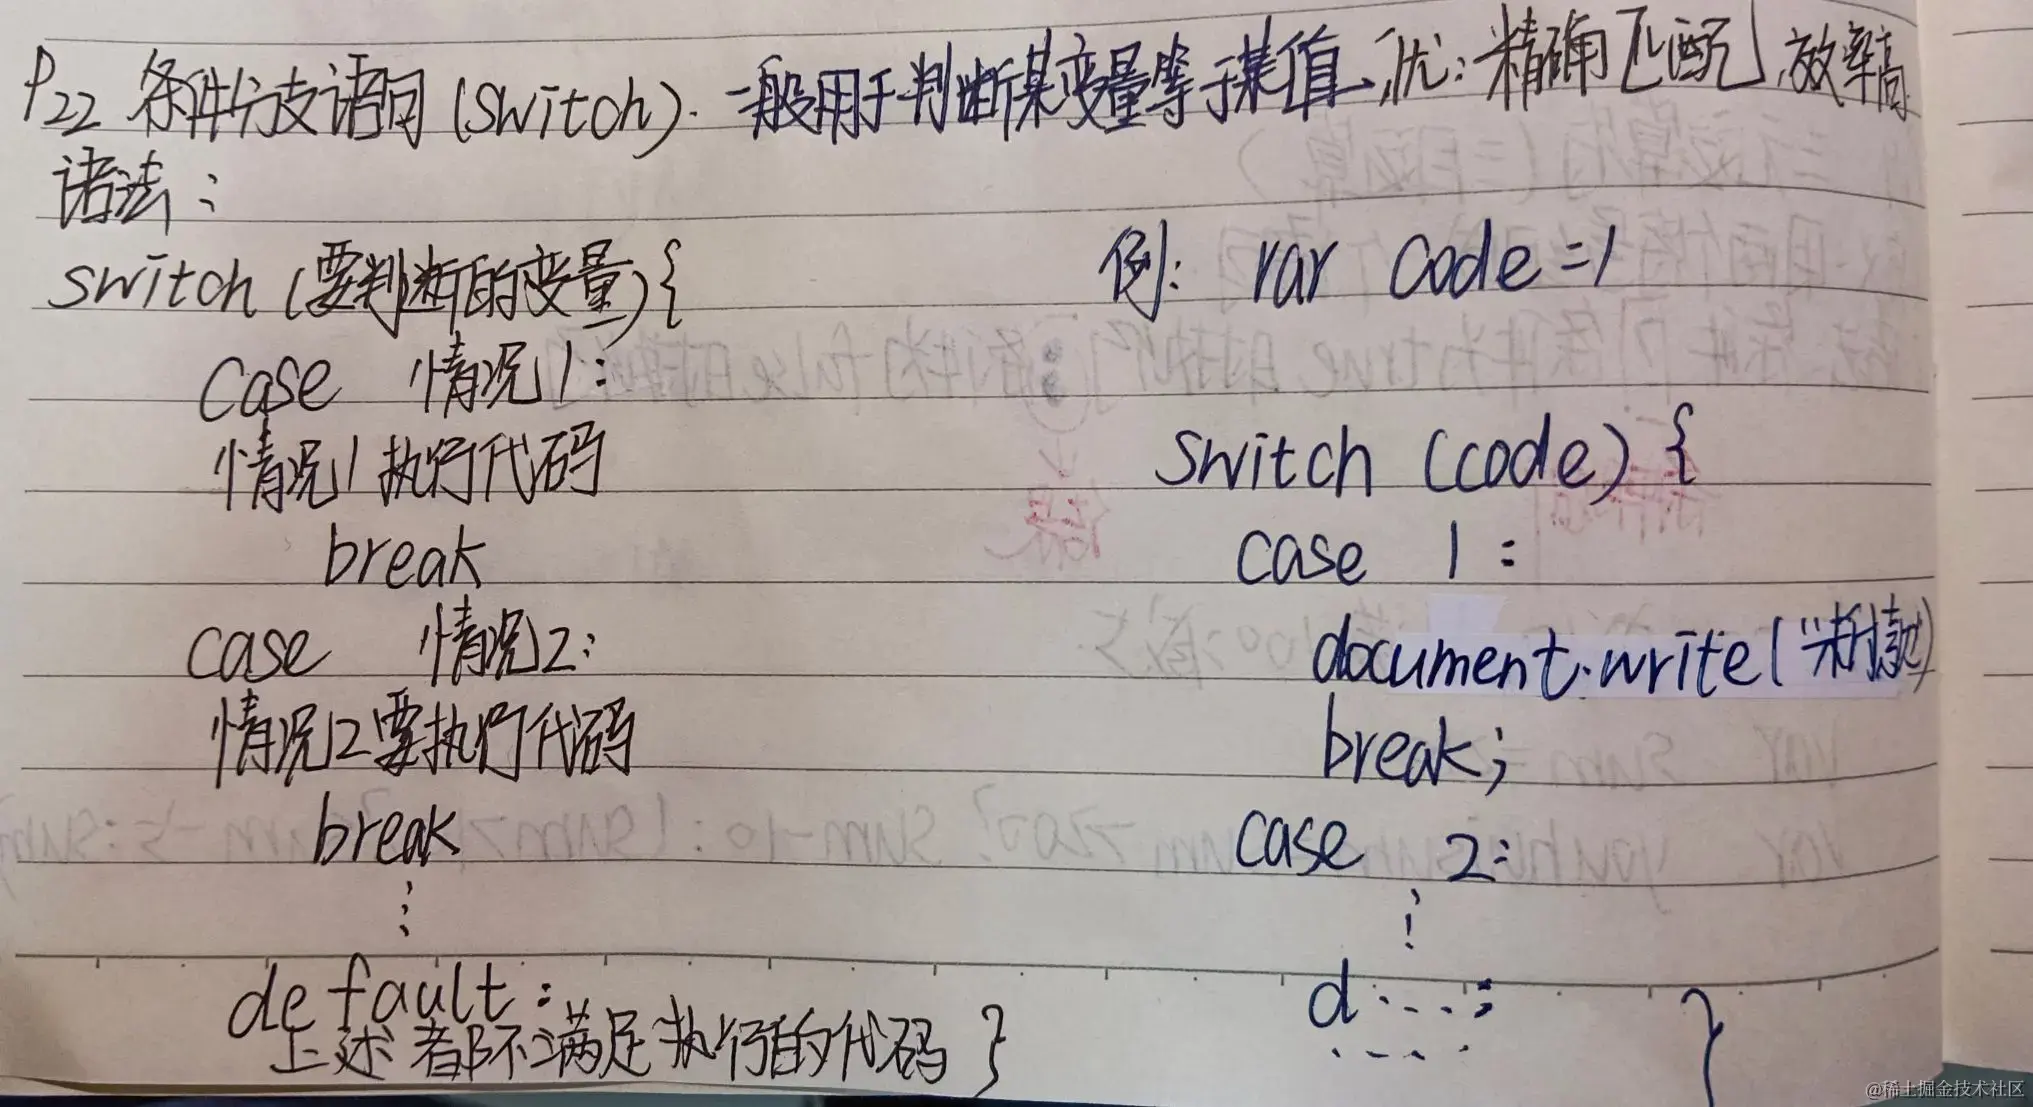 P22 条件分支语句(switch). 一般用于判断某变量等于某值, 优:精确匹配,效率高
语法:
switch (要判断的变量){
case 情况1:
情况1执行代码
break
case 情况2:
情况2要执行代码
break
⋮
default:
上述者都不满足执行的代码 }
例: var code=1
switch (code) {
case 1:
document.write("
break;
case 2:
⋮
d ...:
....
}
@稀土掘金技术社区